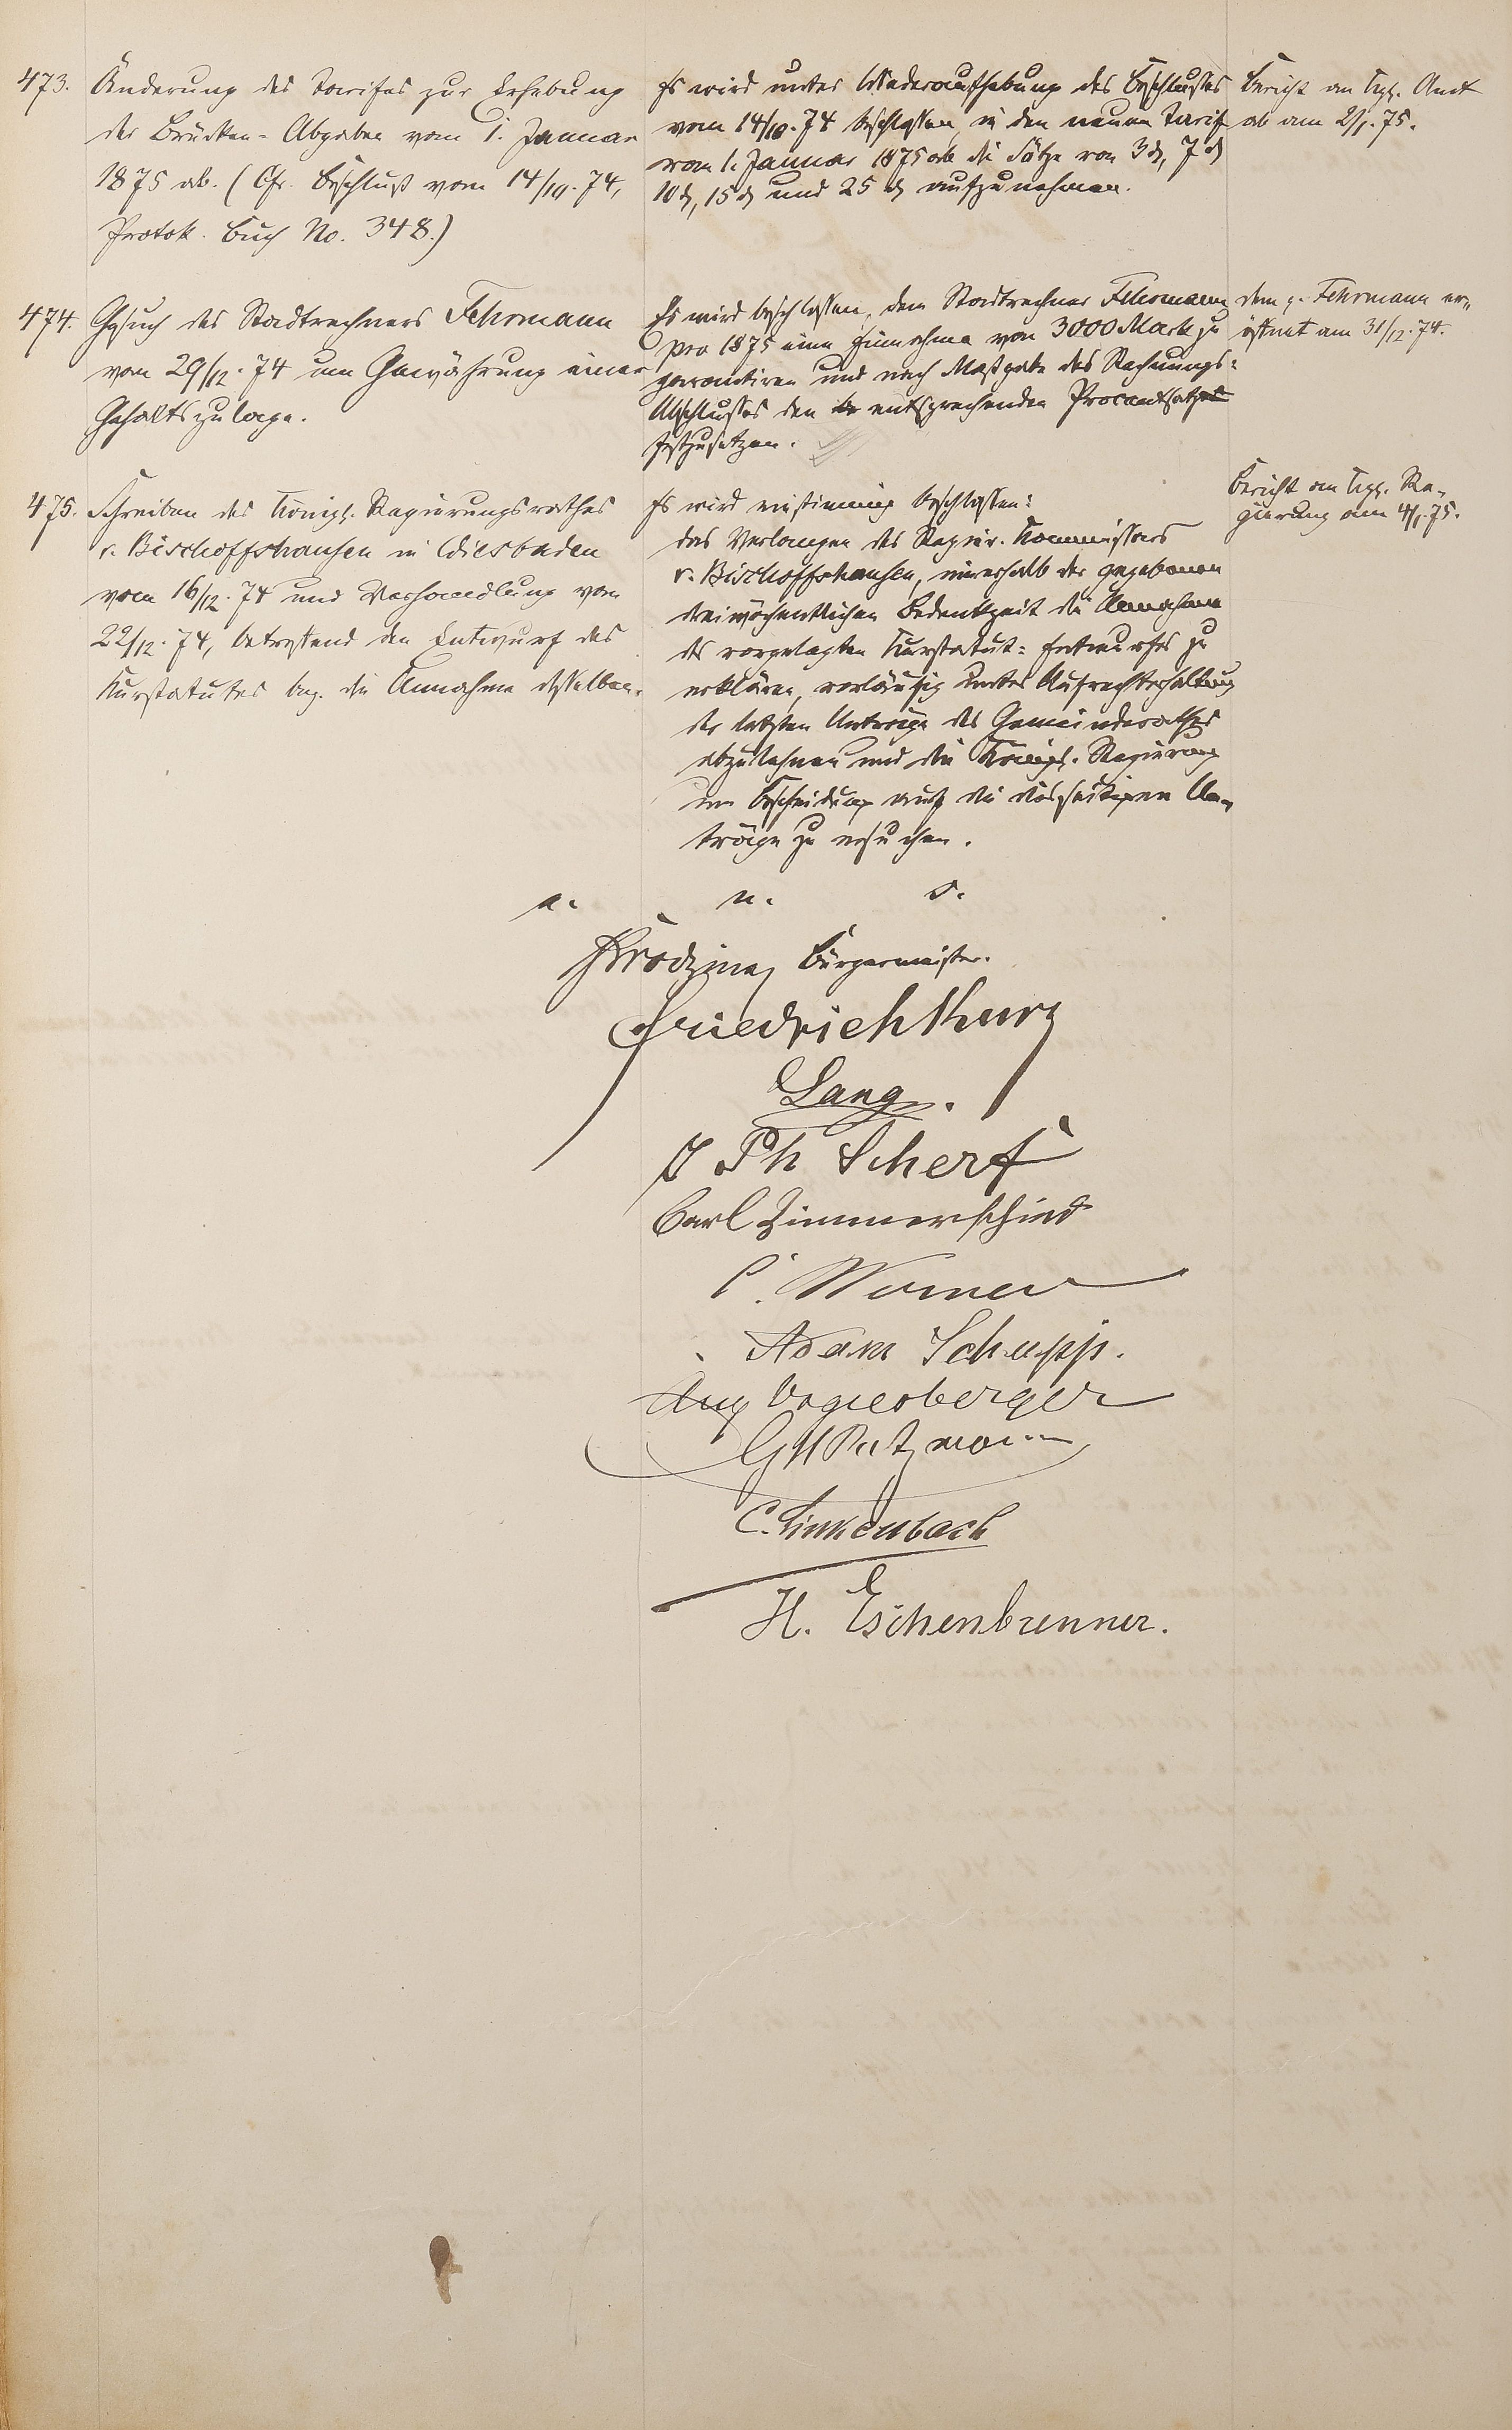 473.
Änderung des Tarifes zur Erhebung
der Brücken-Abgaben vom 1. Januar
1875 ab. (Cfr. Beschluß vom 14/10. 74,
Protok. Buch No. 348.)
Es wird unter Wiederaufhebung des Beschlusses
vom 14/10. 74 beschlossen, in den neuen Tarif
vom 1. Januar 1875 ab die Sätze von 3 ₰, 7 ₰
10 ₰, 15 ₰ und 25 ₰ aufzunehmen.
Bericht an Kgl. Amt
ab am 2/1. 75.
474.
Gesuch des Stadtrechners Fehrmann
vom 29/12. 74 um Gewährung einer
Gehaltszulage.
Es wird beschlossen, dem Stadtrechner Fehrmann
pro 1875 eine Einnahme von 3000 Mark zu
garantiren und nach Maßgabe des Rechnungs=
Abschlusses den entsprechenden Procentsatz
festzusetzen.
dem p. Fehrmann er=
öffnet am 31/12. 74.
475.
Schreiben des Königl. Regierungsrathes
v. Bischoffshausen in Wiesbaden
vom 16/12. 74 und Verhandlung vom
22/12. 74, betreffend den Entwurf des
Kurstatutes bez. die Annahme desselben.
Es wird einstimmig beschlossen:
das Verlangen des Regier. Kommissars
v. Bischoffshausen, innerhalb der gegebenen
dreiwöchentlichen Bedenkzeit die Annahme
des vorgelegten Kurstatut=Entwurfes zu
erklären, vorläufig unter Aufrechterhaltung
der letzten Anträge des Gemeinderathes
abzulehnen und die Königl. Regierung
um Bescheidung auf die diesseitigen An=
träge zu ersuchen.
Bericht an Kgl. Re=
gierung am 4/1. 75.
a. u. s.
Bürgermeister.
Friedrich Kurz
Lang.
J Ph Scherf
Carl Zimmerschied
C. Werner
Adam Schupp.
Aug Vogelsberger
C. Linkenbach
H. Eschenbrenner.